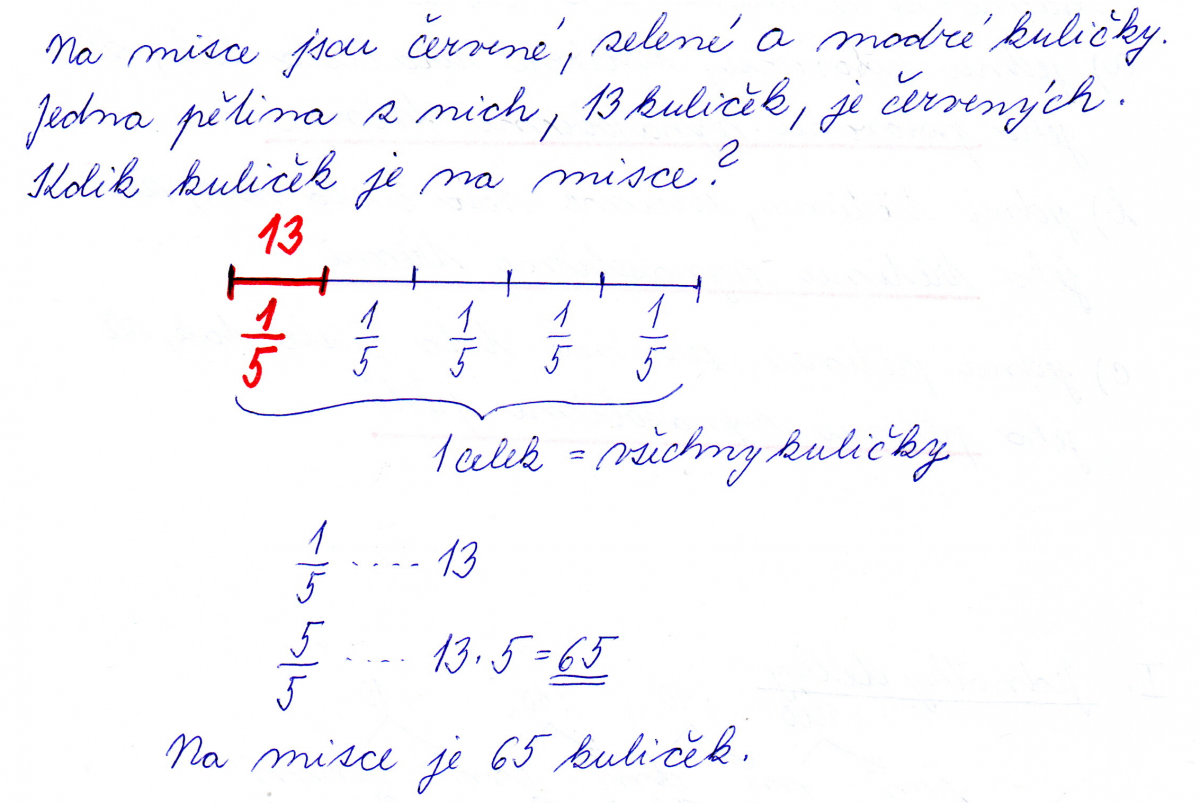 Na misce jsou červené, zelené a modré kuličky.
Jedna pětina z nich, 13 kuliček, je červených.
Kolik kuliček je na misce?
13
1/5 1/5 1/5 1/5 1/5
1 celek = všechny kuličky
1/5 ..... 13
5/5 ..... 13 · 5 = 65
Na misce je 65 kuliček.